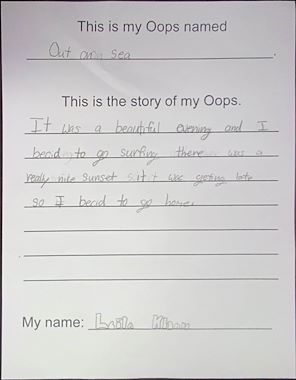 This is my Oops named
Out on sea
This is the story of my Oops.
It was a beautiful evening and I
becid to go surfing there was a
really nite sunset sit was geting late
so I becid to go home.
My name: Laila Khan